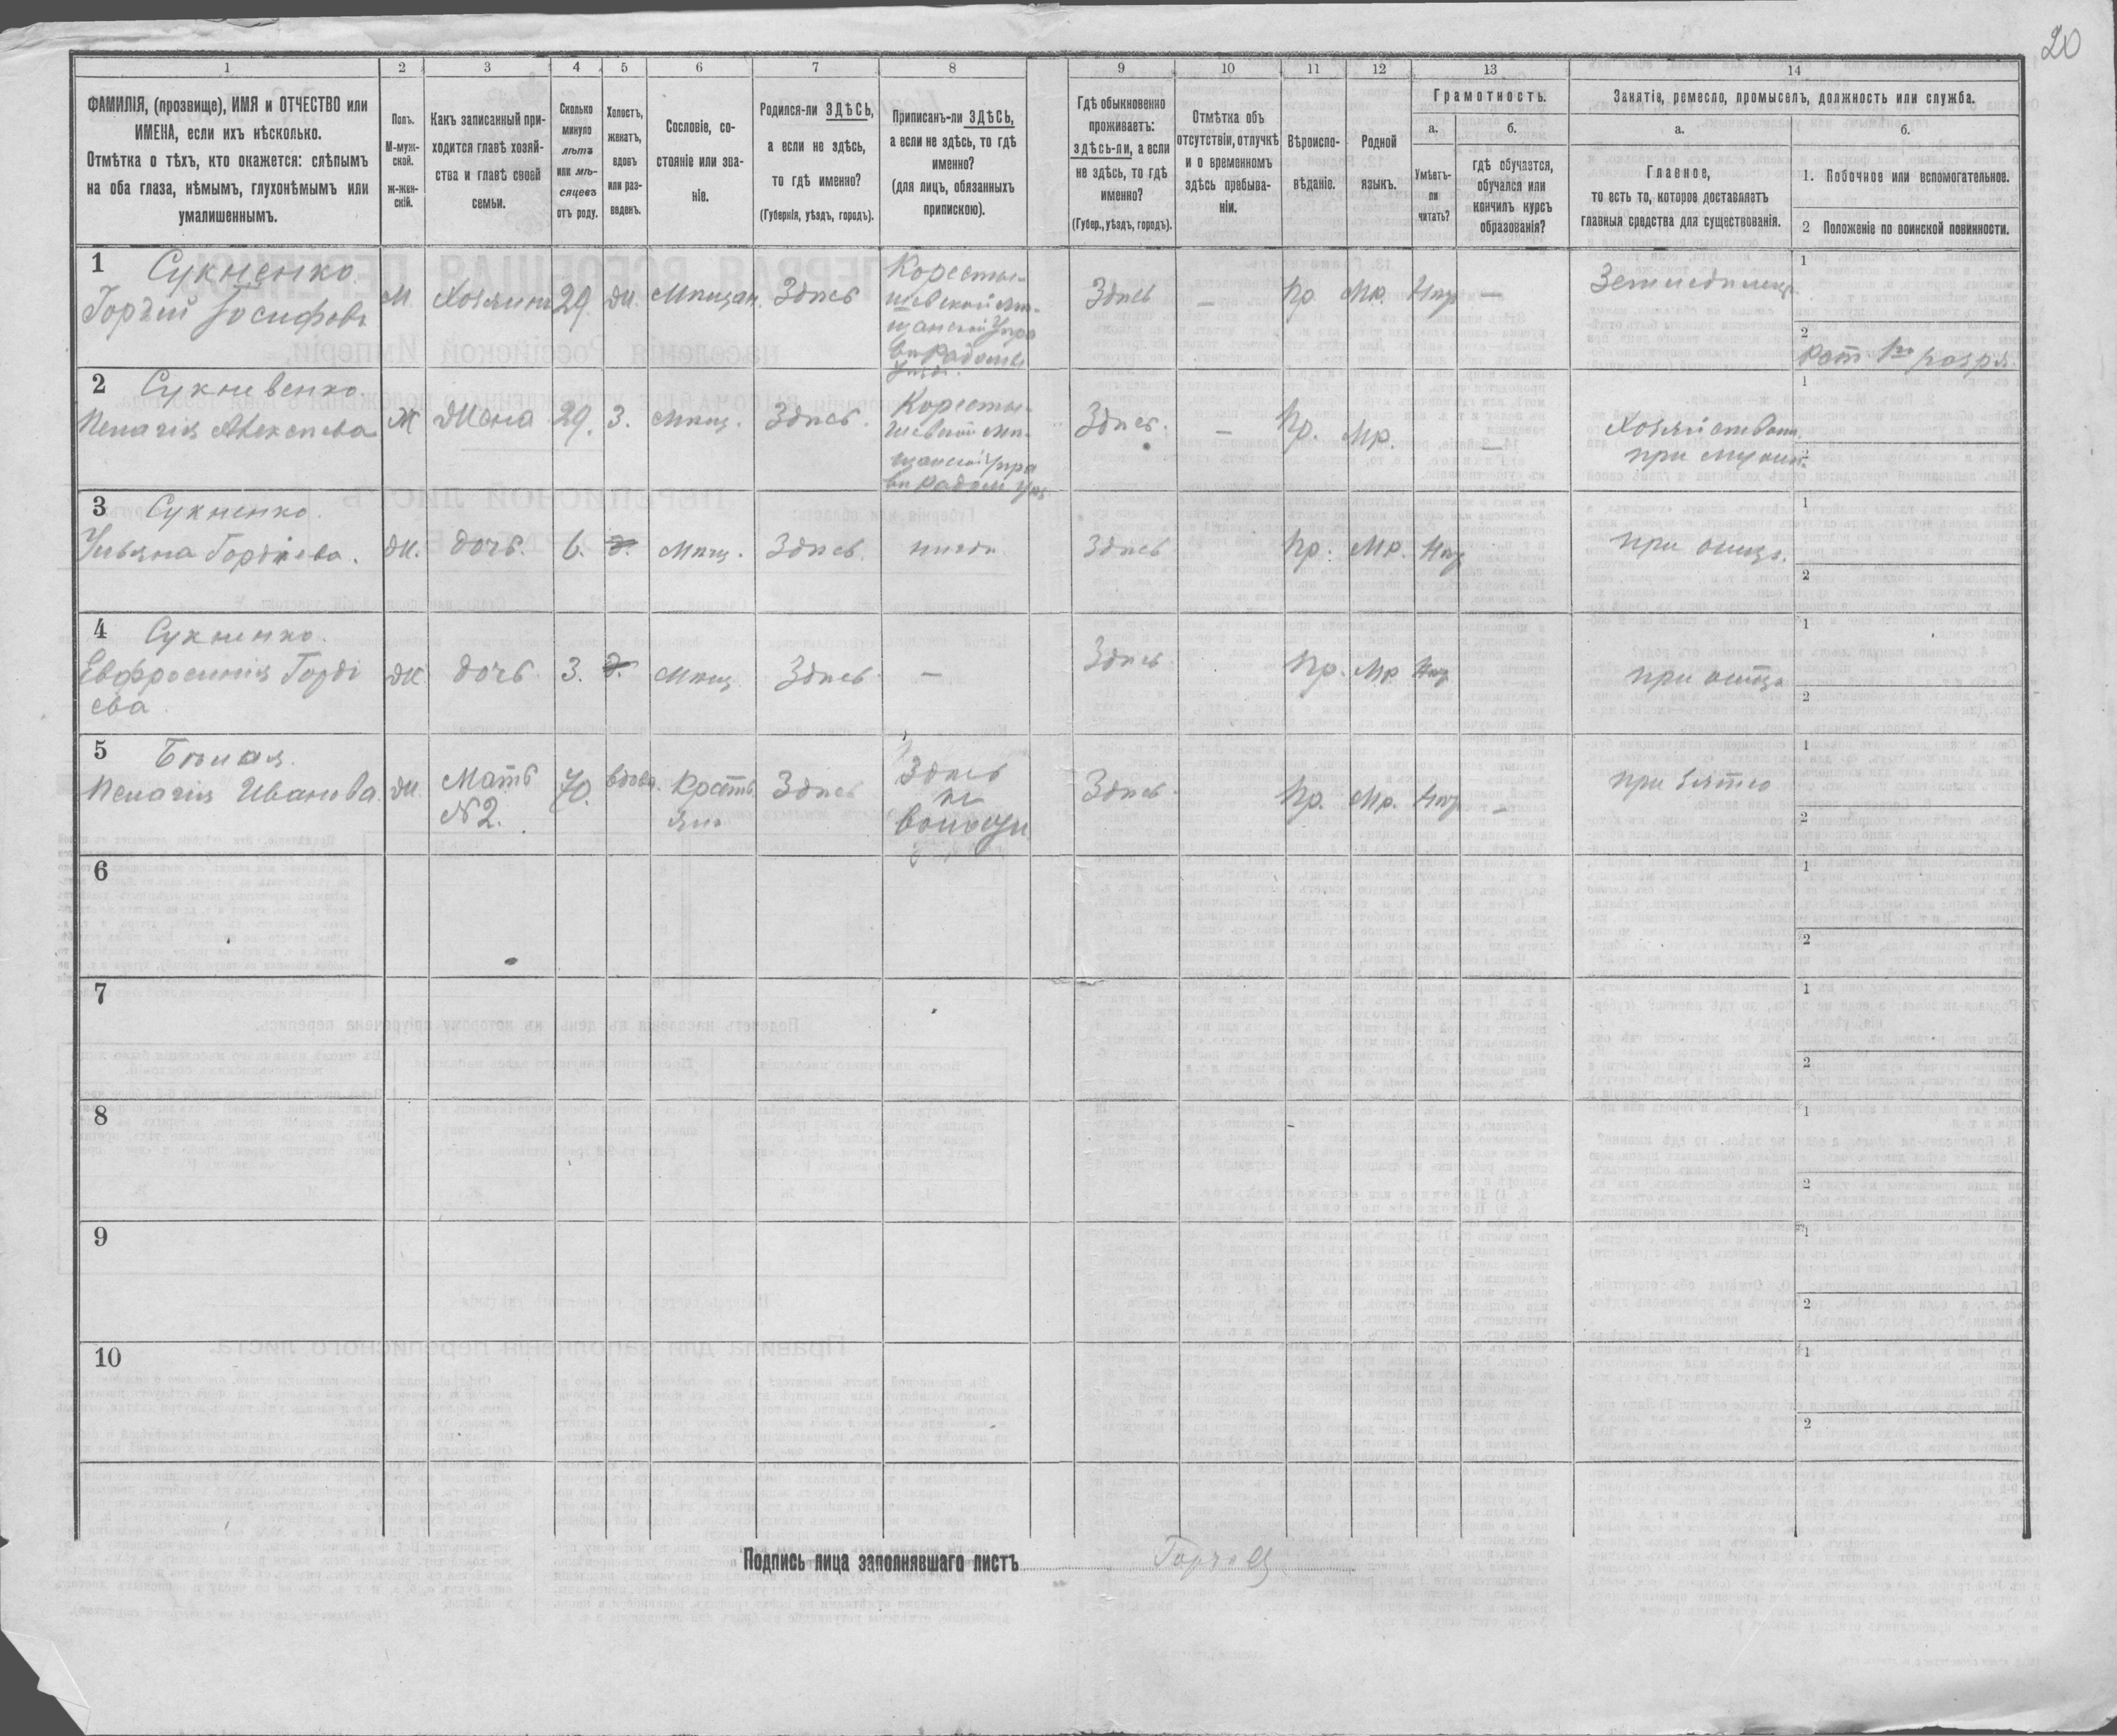 20
1 2 3 4 5 6 7 8 9 10 11 12 13 14
ФАМИЛІЯ, (прозвище), ИМЯ и ОТЧЕСТВО или
ИМЕНА, если ихъ нѣсколько.
Отмѣтка о тѣхъ, кто окажется: слѣпымъ
на оба глаза, нѣмымъ, глухонѣмымъ или
умалишеннымъ.
Полъ.
М-муж-
ской.
ж-жен-
скій.
Какъ записанный при-
ходится главѣ хозяй-
ства и главѣ своей
семьи.
Сколько
минуло
лѣтъ
или мѣ-
сяцевъ
отъ роду.
Холостъ,
женатъ,
вдовъ
или раз-
веденъ.
Сословіе, со-
стояніе или зва-
ніе.
Родился-ли ЗДѢСЬ,
а если не здѣсь,
то гдѣ именно?
(Губернія, уѣздъ, городъ).
Приписанъ-ли ЗДѢСЬ,
а если не здѣсь, то гдѣ
именно?
(для лицъ, обязанныхъ
припискою).
Гдѣ обыкновенно
проживаетъ:
здѣсь-ли, а если
не здѣсь, то гдѣ
именно?
(Губер., уѣздъ, городъ).
Отмѣтка объ
отсутствіи, отлучкѣ
и о временномъ
здѣсь пребыва-
ніи.
Вѣроиспо-
вѣданіе.
Родной
языкъ.
Грамотность.
а.
Умѣетъ-
ли
читать?
б.
гдѣ обучается,
обучался или
кончилъ курсъ
образованія?
Занятіе, ремесло, промыселъ, должность или служба.
а.
Главное,
то есть то, которое доставляетъ
главныя средства для существованія.
б.
1. Побочное или вспомогательное.
2 Положеніе по воинской повинности.
1 Сукненко
Гордѣй Іосифовъ
М. Хозяинъ 29. Ж. Мѣщан. Здѣсь
Коросты-
шевской мѣ-
щанской Упра
вѣ Радомы
Уѣзд.
Здѣсь — Пр Мр. Нгр —
Земледѣлецъ
1
2
Рат 1го разря.
2 Сукневенко
Пелагія Алексѣева
Ж Жена 29. З. Мѣщ. Здѣсь.
Коросты-
шевской мѣ-
щанской Упра
вѣ Радом Уѣз
Здѣсь. — Пр. Мр. —
Хозяйствомъ
при мужѣ
1
2
3 Сукненко.
Ульяна Гордѣева.
Ж. дочь. 6. д. Мѣщ. Здѣсь. нигдѣ Здѣсь Пр. Мр. Нгр
при отцѣ.
1
2
4 Сукненко.
Евфросинія Горді
ева
Ж дочь 3. д. Мѣщ. Здѣсь — Здѣсь Пр. Мр Нгр
при отцѣ
1
2
5 Бѣлая.
Пелагія Иванова.
Ж Мать
№2. 70. вдова. Крестья
Здѣсь Здѣсь
въ
волости
Здѣсь. Пр. Мр. Нгр —
при зятѣ
1
2
6
1
2
7
1
2
8
1
2
9
1
2
10
1
2
Подпись лица заполнявшаго листъ